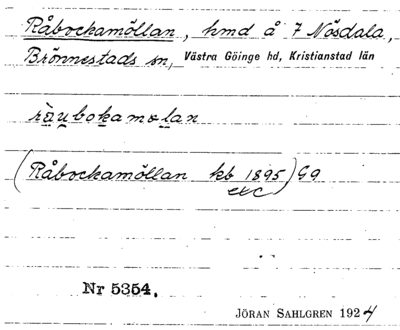 Råbockamöllan, hmd å 7 Nösdala,
Brönnestads sn, Västra Göinge hd, Kristianstad län
ràu̲bok̲amøl̲an
(Råbockamöllan kb 1895) G9
etc
Nr 5354.
JÖRAN SAHLGREN 1924